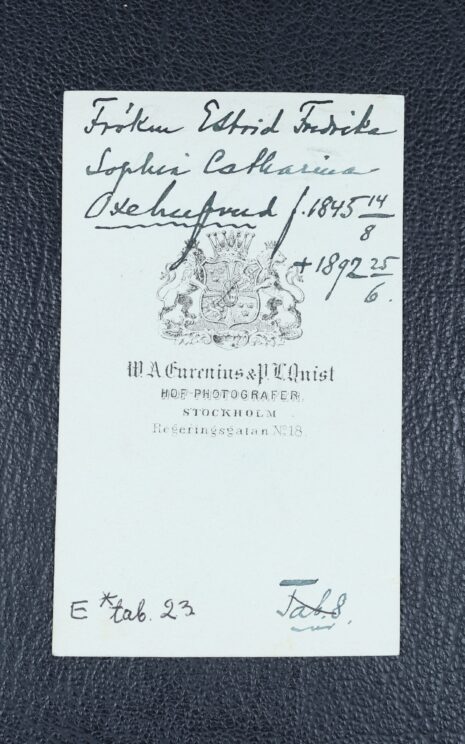 Fröken Estrid Fredrika
Sophia Catharina
Oxehufvud f. 1845 14/8
+ 1892 25/6.
W. A. Eurenius & P. L. Quist
HOF-PHOTOGRAFER
STOCKHOLM
Regeringsgatan No 18.
E * tab. 23
Tab. 8.